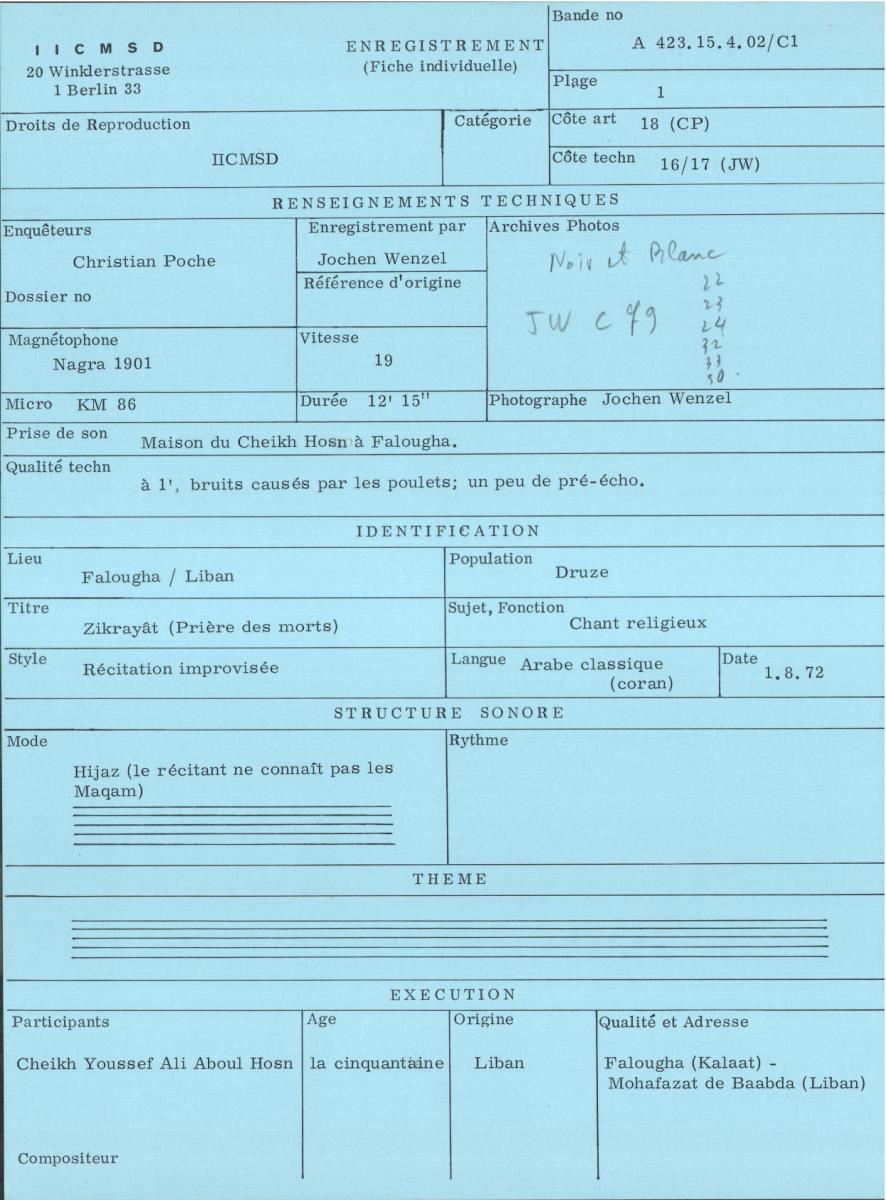 I I C M S D
20 Winklerstrasse
1 Berlin 33
ENREGISTREMENT
(Fiche individuelle)
Bande no
A 423.15.4.02/C1
Plage
1
Droits de Reproduction
IICMSD
Catégorie
Côte art 18 (CP)
Côte techn 16/17 (JW)
RENSEIGNEMENTS TECHNIQUES
Enquêteurs
Christian Poche
Dossier no
Enregistrement par
Jochen Wenzel
Référence d'origine
Archives Photos
Noir et Blanc
JW C 79
22
23
24
32
33
30.
Magnétophone
Nagra 1901
Vitesse
19
Micro KM 86
Durée 12' 15"
Photographe Jochen Wenzel
Prise de son Maison du Cheikh Hosn à Falougha.
Qualité techn
à 1', bruits causés par les poulets; un peu de pré-écho.
IDENTIFICATION
Lieu
Falougha / Liban
Population
Druze
Titre
Zikrayât (Prière des morts)
Sujet, Fonction
Chant religieux
Style
Récitation improvisée
Langue Arabe classique
(coran)
Date
1.8.72
STRUCTURE SONORE
Mode
Hijaz (le récitant ne connaît pas les
Maqam)
Rythme
THEME
EXECUTION
Participants
Cheikh Youssef Ali Aboul Hosn
Age
la cinquantaine
Origine
Liban
Qualité et Adresse
Falougha (Kalaat) -
Mohafazat de Baabda (Liban)
Compositeur